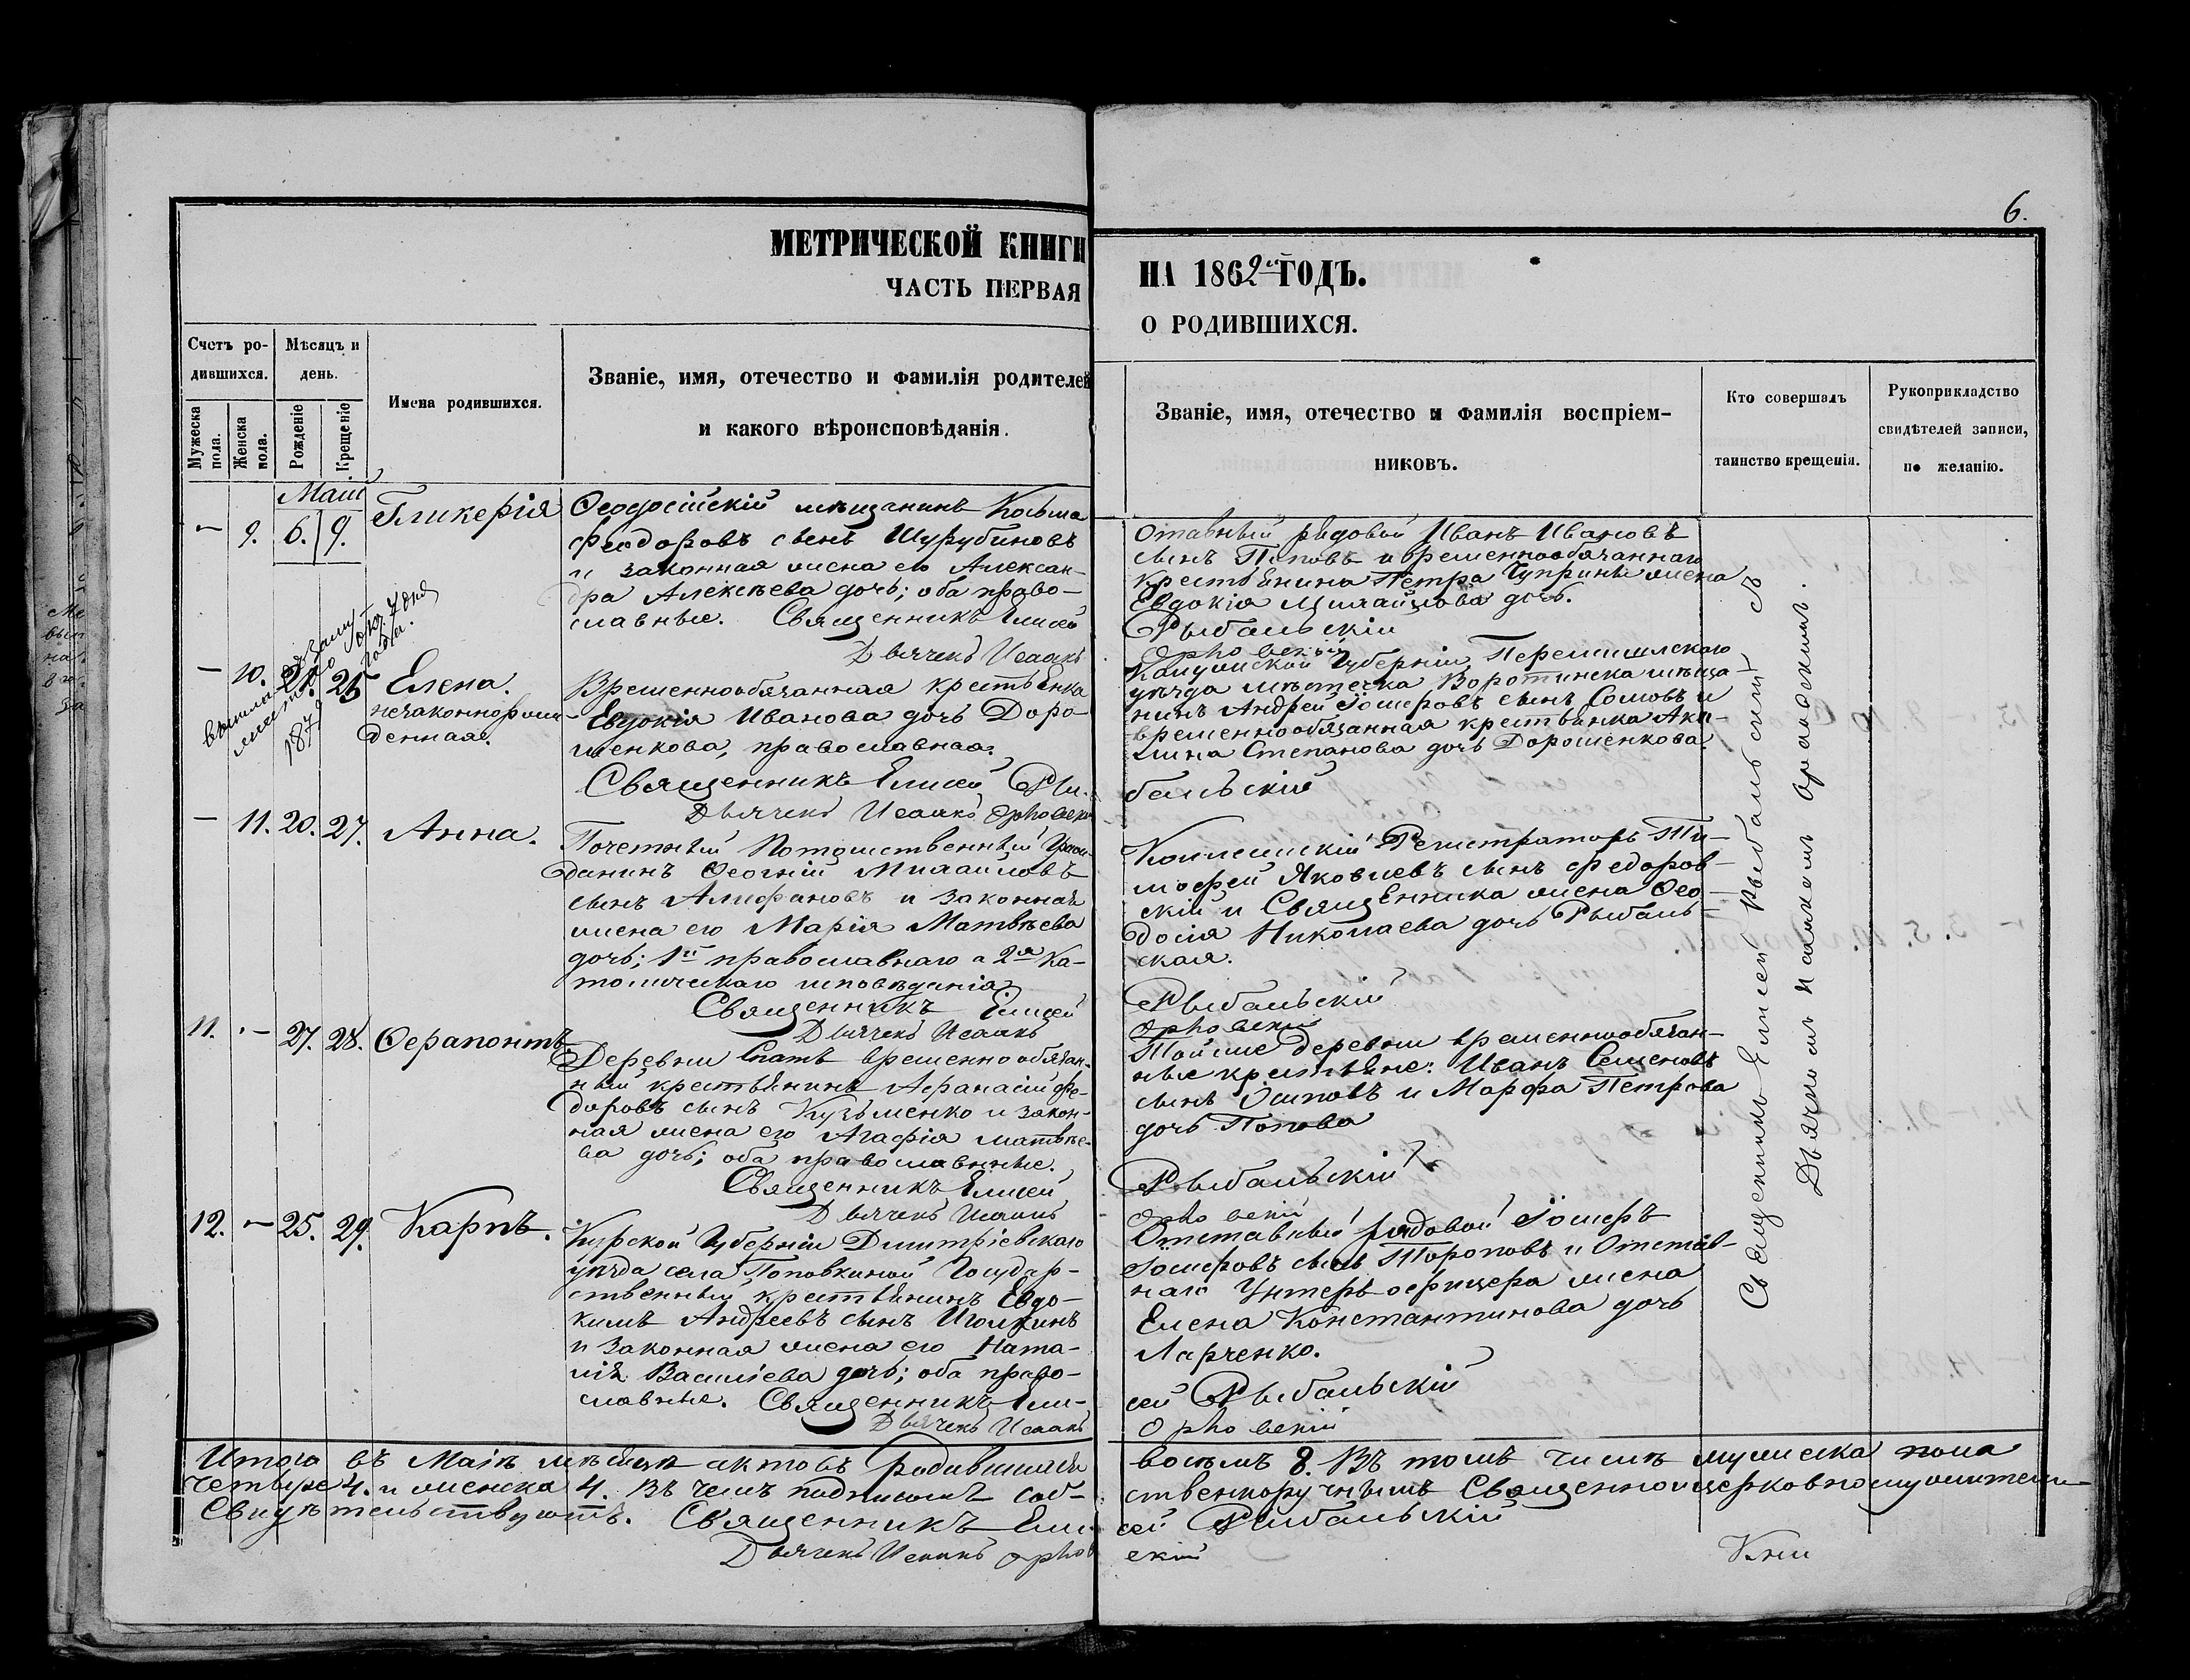 6.
МЕТРИЧЕСКОЙ КНИГИ
НА 1862й ГОДЪ.
ЧАСТЬ ПЕРВАЯ
О РОДИВШИХСЯ.
Счетъ ро-
дившихся.
Мужеска пола.
Женска пола.
Мѣсяцъ и
день.
Рожденіе
Крещеніе
Имена родившихся.
Званіе, имя, отечество и фамилія родителей
и какого вѣроисповѣданія.
Званіе, имя, отечество и фамилія воспріем-
никовъ.
Кто совершалъ
таинство крещенія.
Рукоприкладство
свидѣтелей записи,
по желанію.
Маій
— 9. 6. 9. Гликерія
Ѳеодосійскій мѣщанинъ Козьма
Феодоровъ сынъ Шурубиновъ
и законная жена его Алексан-
дра Алексѣева дочь; оба право-
славные. Священникъ Елисей
Дьячекъ Исаакъ
Отавный рядовой Иванъ Ивановъ
сынъ Поповъ и временнообязаннаго
крестьянина Петра Чуприны жена
Евдокія Михайлова дочь.
Рыбальскій
Орловскій
— 10. 21. 25 Елена.
незаконнорож-
денная.
Временнообязанная крестьянка
Евдокія Иванова дочь Доро-
шенкова, православная.
Священникъ Елисей Ры-
Дьячекъ Исаакъ Орловскій
Калужской Губерніи, Перемишлскаго
уѣзда мѣстечка Воротинска мѣща-
нинъ Андрей Іосифовъ сынъ Сомовъ и
временнообязанная крестьянка Аки-
лина Степанова дочь Дорошенкова.
бальскій
— 11. 20. 27. Анна.
Почетный Потомственный Граж-
данинъ Ѳеогній Михайловъ
сынъ Алифановъ и законная
жена его Марія Матвѣева
дочь; 1й православнаго а 2я Ка-
толическаго исповѣданія
Священникъ Елисей
Дьячекъ Исаакъ
Коллежскій Регистраторъ Ти-
мофей Яковлевъ сынъ Федоров-
скій и Священника жена Ѳео-
досія Николаева дочь Рыбаль-
ская.
Рыбальскій
Орловскій
11. — 27. 28. Ѳерапонтъ
Деревни Спатъ временнообязан-
ный крестьянинъ Афанасій Фе-
доровъ сынъ Кузьменко и закон-
ная жена его Агафія Матвѣе-
ва дочь; оба православные.
Священникъ Елисей
Дьячекъ Исаакъ
Той же деревни временнообязан-
ные крестьяне: Иванъ Семеновъ
сынъ Осиповъ и Марфа Петрова
дочь Попова
Рыбальскій
Орловскій
12. — 25. 29. Карпъ.
Курской Губерніи Дмитріевскаго
уѣзда села Поповкиной Государ-
ственный крестьянинъ Евдо-
кимъ Андреевъ сынъ Иголкинъ
и законная жена его Ната-
лія Василіева дочь; оба право-
славные. Священникъ Ели-
Дьячекъ Исаакъ
Отставный рядовой Іосифъ
Іосифовъ сынъ Тороповъ и Отстав-
наго Унтеръ-офицера жена
Елена Константинова дочь
Ларченко.
сей Рыбальскій
Орловскій
Священникъ Елисей Рыбальскій съ
Дьячкомъ Исаакомъ Орловскимъ.
Итого въ Маіѣ мѣсяцѣ актовъ родившихся
восемь 8. Въ томъ числѣ мужеска пола
четыре 4. и женска 4. Въ чемъ подписомъ соб-
ственноручнымъ Священноцерковнослужители
Свидѣтельствуютъ. Священникъ Ели-
сей Рыбальскій
Дьячекъ Исаакъ Орлов
скій